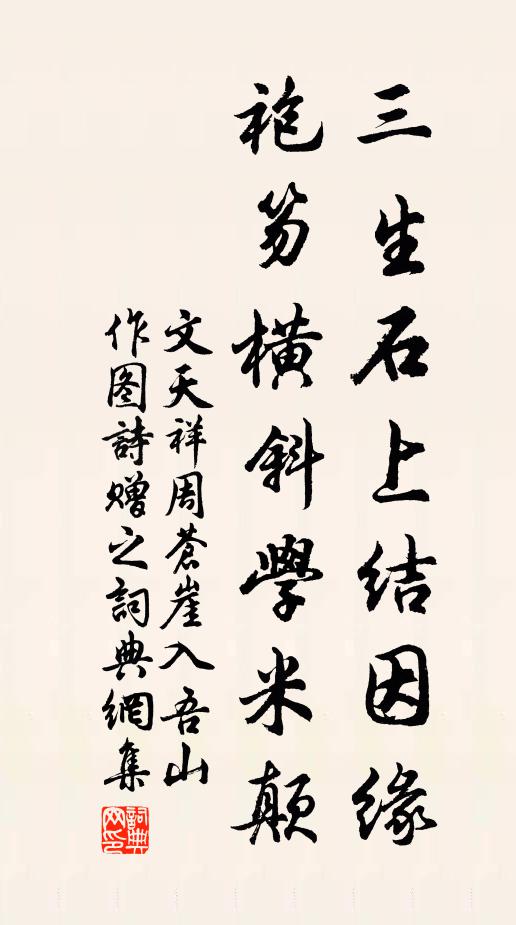 三生石上結因緣
袍笏橫斜學米顛
文天祥周蒼崖入吾山
作图詩贈之詞典網集
詞典網印